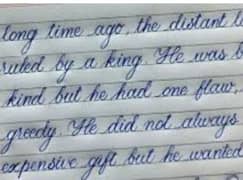 long time ago, the distant l
ruled by a king. He was b
kind but he had one flaw,
greedy. He did not always
expensive gift but he wanted